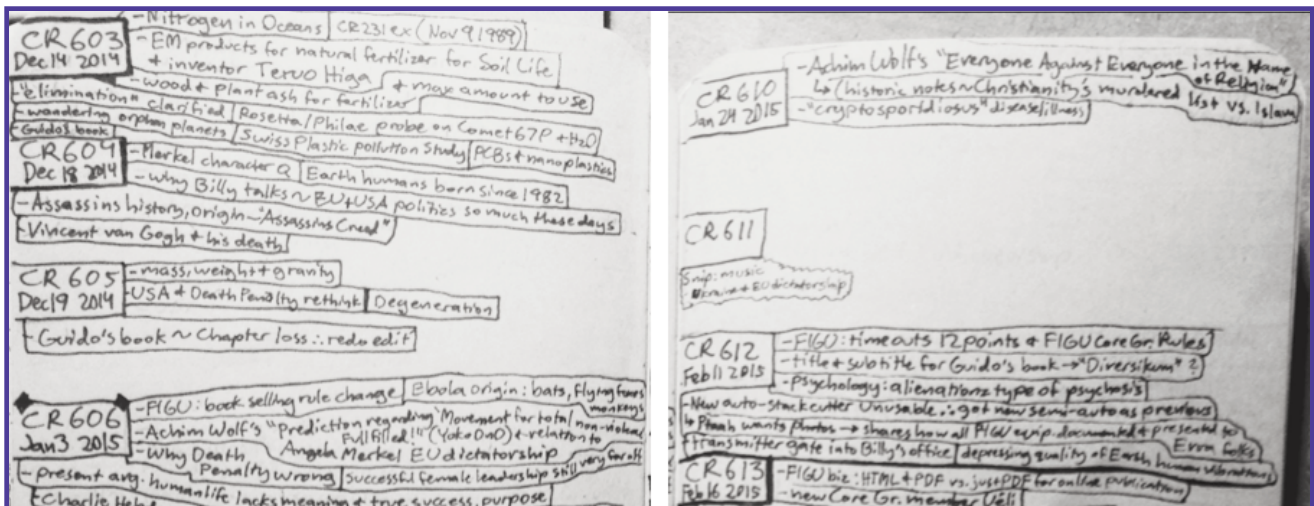 CR 603
Dec 14 2014
-Nitrogen in Oceans
CR 231 ex (Nov 9 1989)
-EM products for natural fertilizer for Soil Life
+ inventor Teruo Higa
-wood + plant ash for fertilizer
+ max amount to use
"elimination" clarified
Rosetta/Philae probe on Comet 67P + H2O
-wandering orphan planets
Swiss Plastic pollution Study
PCBs + nanoplastics
-Guido's book
CR 604
Dec 18 2014
-Merkel character Q
Earth humans born since 1982
-why Billy talks ~ EU+USA politics so much these days
-Assassins history, origin ~"Assassins Creed"
-Vincent van Gogh + his death
CR 605
Dec 19 2014
-mass, weight + gravity
-USA + Death Penalty rethink
Degeneration
-Guido's book ~ Chapter loss ∴ redo edit
CR 606
Jan 3 2015
-FIGU: book selling rule change
Ebola origin: bats, flying foxes
monkeys
-Achim Wolf's "Prediction regarding 'Movement for total non-violence'
Fulfilled!" (Yoko Ono) + relation to
Angela Merkel EU dictatorship
-Why Death Penalty wrong
Successful female leadership still very far off
-present avg. human life lacks meaning + true success, purpose
CR 610
Jan 24 2015
-Achim Wolf's "Everyone Against Everyone in the Name
of Religion"
↳ (historic notes ~ Christianity's murdered list vs. Islam
-"cryptosporidiosus" disease/illness
CR 611
Snip: music
Ukraine + EU dictatorship
CR 612
Feb 11 2015
-FIGU: timeouts 12 points + FIGU Core Gr. Rules
-title + subtitle for Guido's book → "Diversikum" ?
-psychology: alienationz type of psychosis
-New auto-stack cutter Unusable ∴ got new semi-auto as previous
↳ Ptaah wants photos → shares how all FIGU equip. documented + presented to
Erra folks
+transmitter gate into Billy's office
depressing quality of Earth human vibrations
CR 613
Feb 16 2015
-FIGU biz: HTML + PDF vs. just PDF for online publication
-new Core Gr. member Ueli